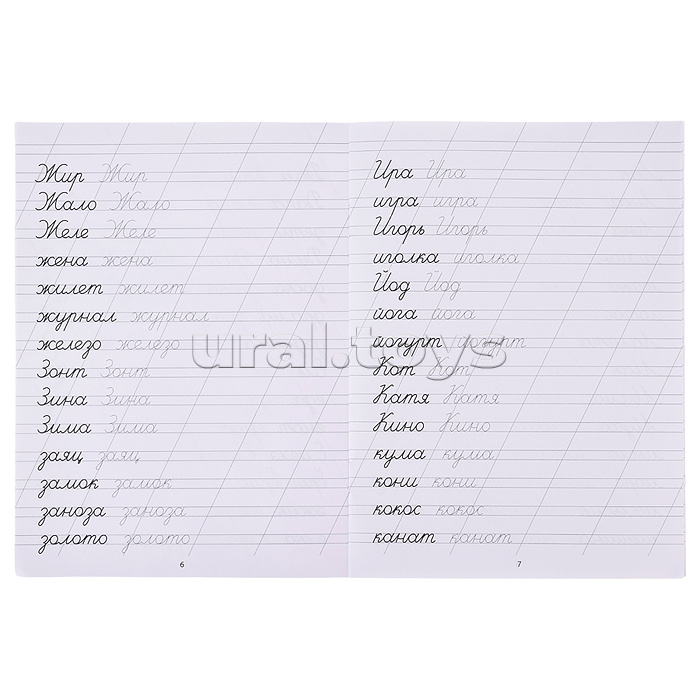 Жир Жир
Жало Жало
Желе Желе
жена жена
жилет жилет
журнал журнал
железо железо
Зонт Зонт
Зина Зина
Зима Зима
заяц заяц
замок замок
заноза заноза
золото золото
6
Ира Ира
игра игра
Игорь Игорь
иголка иголка
Йод Йод
йога йога
йогурт йогурт
Кот Кот
Катя Катя
Кино Кино
кума кума
кони кони
кокос кокос
канат канат
7
ural.toys